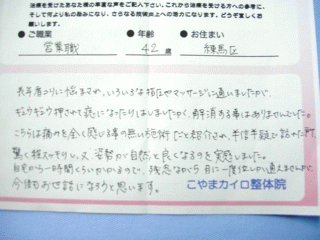 治療を受けたあなた様の率直な声をご記入下さい。これから治療を受ける方への参考に、
そして何よりもの励みになり、さらなる技術向上への活力になります。どうぞ宜しく
お願いします。
●ご職業 ●年齢 ●お住まい
営業職 42歳 練馬区
長年肩こりに悩まされ、いろいろな指圧やマッサージに通いましたが、
ギュウギュウ押されて逆になったりしまいましたが、解消する事はありませんでした。
こちらは痛みを全く感じる事の無い施術だと紹介され、半信半疑で訪れた所、
驚く程スッキリし、又、姿勢が自然と良くなるのを実感しました。
自宅から一時間くらいかかるので、残念ながら月に一度位しか通えませんが、
今後もお世話になろうと思います。
こやまカイロ整体院